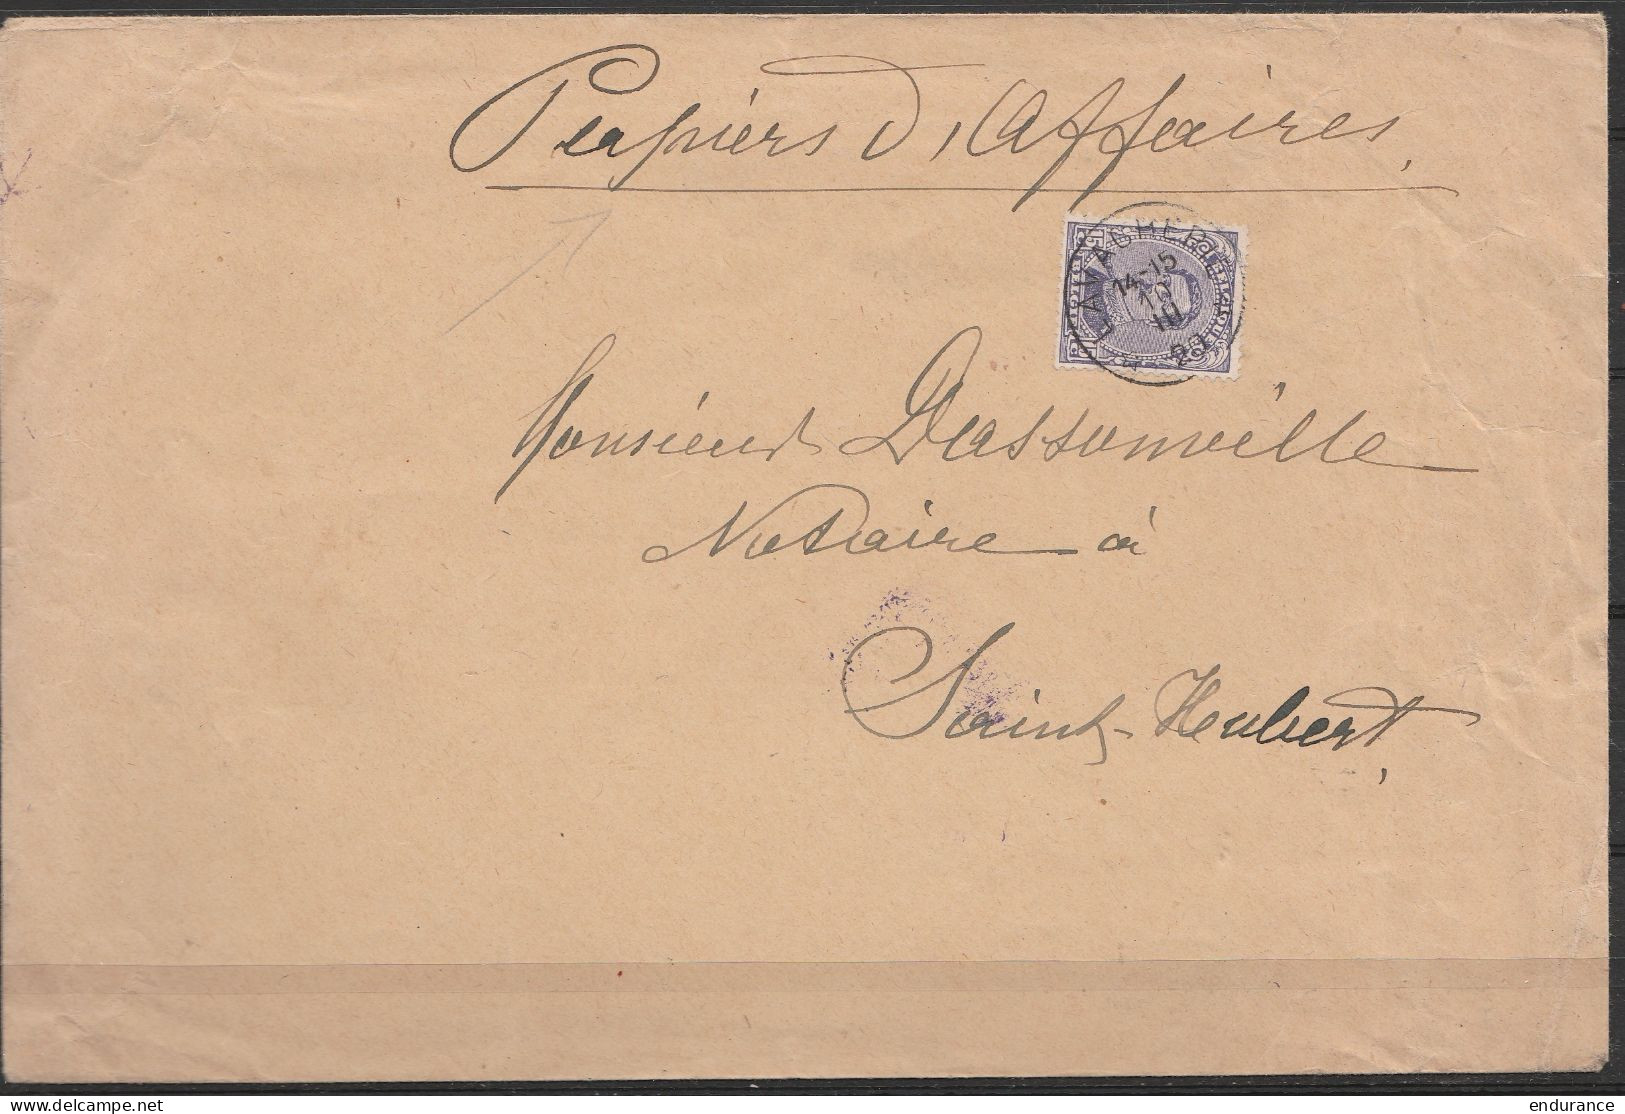 Papiers d'Affaires
LAVACHERIE
14-15
10
III
20
15
15
Monsieur Dassonville
Notaire à
Saint-Hubert,
delcampe.net
endurance